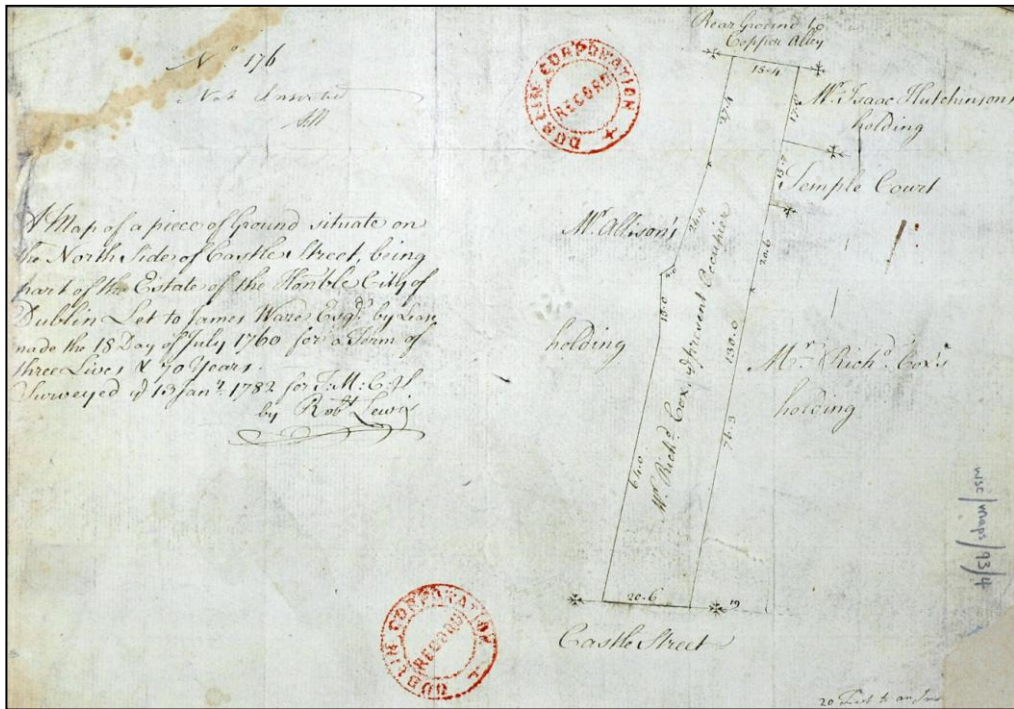 No. 176
Not Inserted
A Map of a piece of Ground situate on
the North Side of Castle Street, being
part of the Estate of the Honble City of
Dublin Let to James Ware Esqr. by Lease
made the 18 Day of July 1760 for a Term of
three Lives & 70 Years.
Surveyed ye 13 Janry. 1782 for
by Robt Lewis
DUBLIN CORPORATION
RECORD
Rear Ground to
Copper Alley
15.4
17.0
Mr. Isaac Hutchinson's
holding
Temple Court
20.6
24.4
Mr. Allison's
holding
15.0
64.0
Mr. Richd. Cox, ye present Occupier
130.0
76.3
Mr. Richd. Cox's
holding
20.6
19
Castle Street
DUBLIN CORPORATION
RECORD
WSC/Maps/93/4
20 Feet to an Inch